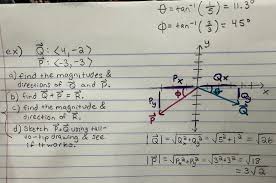 θ = tan⁻¹(1/5) = 11.3°
Φ = tan⁻¹(3/3) = 45°
ex) Q⃗: ⟨4, -2⟩
P⃗: ⟨-3, -3⟩
a) find the magnitudes &
directions of Q⃗ and P⃗.
b) find Q⃗ + P⃗ = R⃗.
c) find the magnitude &
direction of R⃗.
d) Sketch P⃗ + Q⃗ using tail-
to-tip drawing & see
if it works.
y
Px
Qx
x
Φ
θ
Py
Qy
P⃗
Q⃗
|Q⃗| = √Qx² + Qy² = √5² + 1² = √26
|P⃗| = √Px² + Py² = √3² + 3² = √18
= 3√2